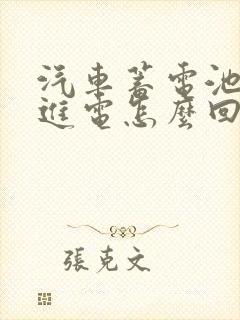 汽車蓄電池
進電怎麼回
張克文